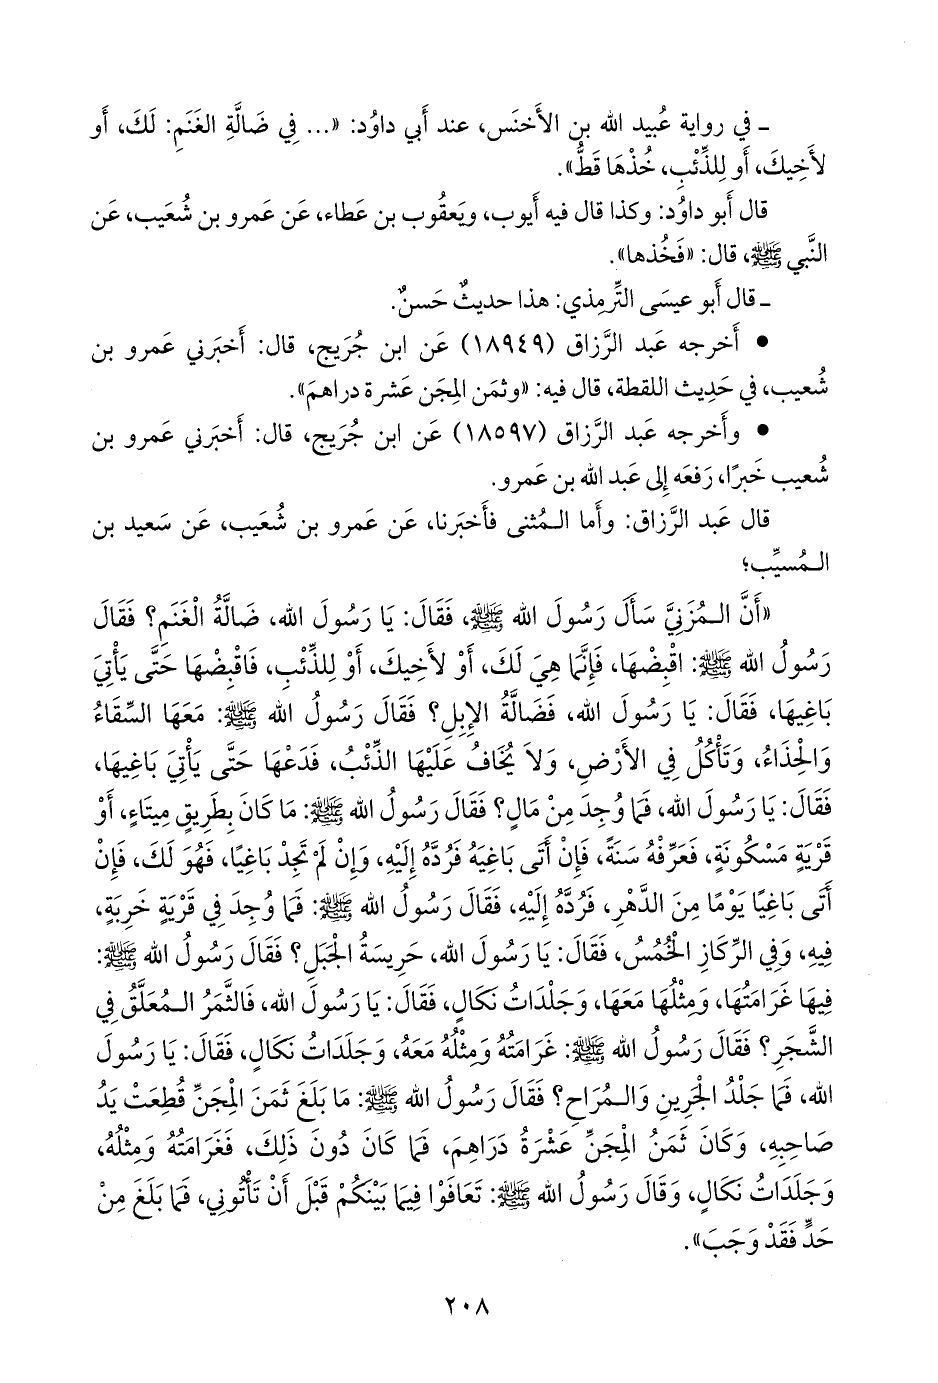 ـ في رواية عُبيد الله بن الأَخنَس، عند أَبي داوُد: «... فِي ضَالَّةِ الغَنَمِ: لَكَ، أَو
لأَخِيكَ، أَو لِلذِّئْبِ، خُذْهَا قَطُّ».
قال أَبو داوُد: وكذا قال فيه أَيوب، ويَعقُوب بن عَطاء، عَن عَمرو بن شُعَيب، عَن
النَّبي ﷺ، قال: «فَخُذها».
ـ قال أَبو عيسَى التِّرمِذي: هذا حديثٌ حَسنٌ.
• أَخرجه عَبد الرَّزاق (١٨٩٤٩) عَن ابن جُرَيج، قال: أَخبَرني عَمرو بن
شُعيب، في حَدِيث اللقطة، قال فيه: «وثمَن المِجَن عَشرة دراهمَ».
• وأَخرجه عَبد الرَّزاق (١٨٥٩٧) عَن ابن جُرَيج، قال: أَخبَرني عَمرو بن
شُعيب خَبرًا، رَفعَه إِلى عَبد الله بن عَمرو.
قال عَبد الرَّزاق: وأَما الـمُثنى فأَخبَرنا، عَن عَمرو بن شُعَيب، عَن سَعيد بن
الـمُسيِّب؛
«أَنَّ الـمُزَنِيَّ سَأَلَ رَسُولَ الله ﷺ، فَقَالَ: يَا رَسُولَ الله، ضَالَّةُ الْغَنَمِ؟ فَقَالَ
رَسُولُ الله ﷺ: اقْبِضْهَا، فَإِنَّمَا هِيَ لَكَ، أَوْ لأَخِيكَ، أَوْ لِلذِّئْبِ، فَاقْبِضْهَا حَتَّى يَأْتِيَ
بَاغِيهَا، فَقَالَ: يَا رَسُولَ الله، فَضَالَّةُ الإِبِلِ؟ فَقَالَ رَسُولُ الله ﷺ: مَعَهَا السِّقَاءُ
وَالْحِذَاءُ، وَتَأْكُلُ فِي الأَرْضِ، وَلاَ يُخَافُ عَلَيْهَا الذِّئْبُ، فَدَعْهَا حَتَّى يَأْتِيَ بَاغِيهَا،
فَقَالَ: يَا رَسُولَ الله، فَمَا وُجِدَ مِنْ مَالٍ؟ فَقَالَ رَسُولُ الله ﷺ: مَا كَانَ بِطَرِيقٍ مِيتَاءٍ، أَوْ
قَرْيَةٍ مَسْكُونَةٍ، فَعَرِّفْهُ سَنَةً، فَإِنْ أَتَى بَاغِيَهُ فَرُدَّهُ إِلَيْهِ، وَإِنْ لَمْ تَجِدْ بَاغِيًا، فَهُوَ لَكَ، فَإِنْ
أَتَى بَاغِيًا يَوْمًا مِنَ الدَّهْرِ، فَرُدَّهُ إِلَيْهِ، فَقَالَ رَسُولُ الله ﷺ: فَمَا وُجِدَ فِي قَرْيَةٍ خَرِبَةٍ،
فِيهِ، وَفِي الرِّكَازِ الْخُمُسُ، فَقَالَ: يَا رَسُولَ الله، حَرِيسَةُ الْجَبَلِ؟ فَقَالَ رَسُولُ الله ﷺ:
فِيهَا غَرَامَتُهَا، وَمِثْلُهَا مَعَهَا، وَجَلْدَاتُ نَكَالٍ، فَقَالَ: يَا رَسُولَ الله، فَالثَّمَرُ الـمُعَلَّقُ فِي
الشَّجَرِ؟ فَقَالَ رَسُولُ الله ﷺ: غَرَامَتُهُ وَمِثْلُهُ مَعَهُ، وَجَلَدَاتُ نَكَالٍ، فَقَالَ: يَا رَسُولَ
الله، فَمَا جَلْدُ الْجَرِينِ وَالـمُرَاحِ؟ فَقَالَ رَسُولُ الله ﷺ: مَا بَلَغَ ثَمَنَ الْمِجَنِّ قُطِعَتْ يَدُ
صَاحِبِهِ، وَكَانَ ثَمَنُ الْمِجَنِّ عَشْرَةُ دَرَاهِمَ، فَمَا كَانَ دُونَ ذَلِكَ، فَغَرَامَتُهُ وَمِثْلُهُ،
وَجَلَدَاتُ نَكَالٍ، وَقَالَ رَسُولُ الله ﷺ: تَعَافَوْا فِيمَا بَيْنَكُمْ قَبْلَ أَنْ تَأْتُونِي، فَمَا بَلَغَ مِنْ
حَدٍّ فَقَدْ وَجَبَ».
٢٠٨